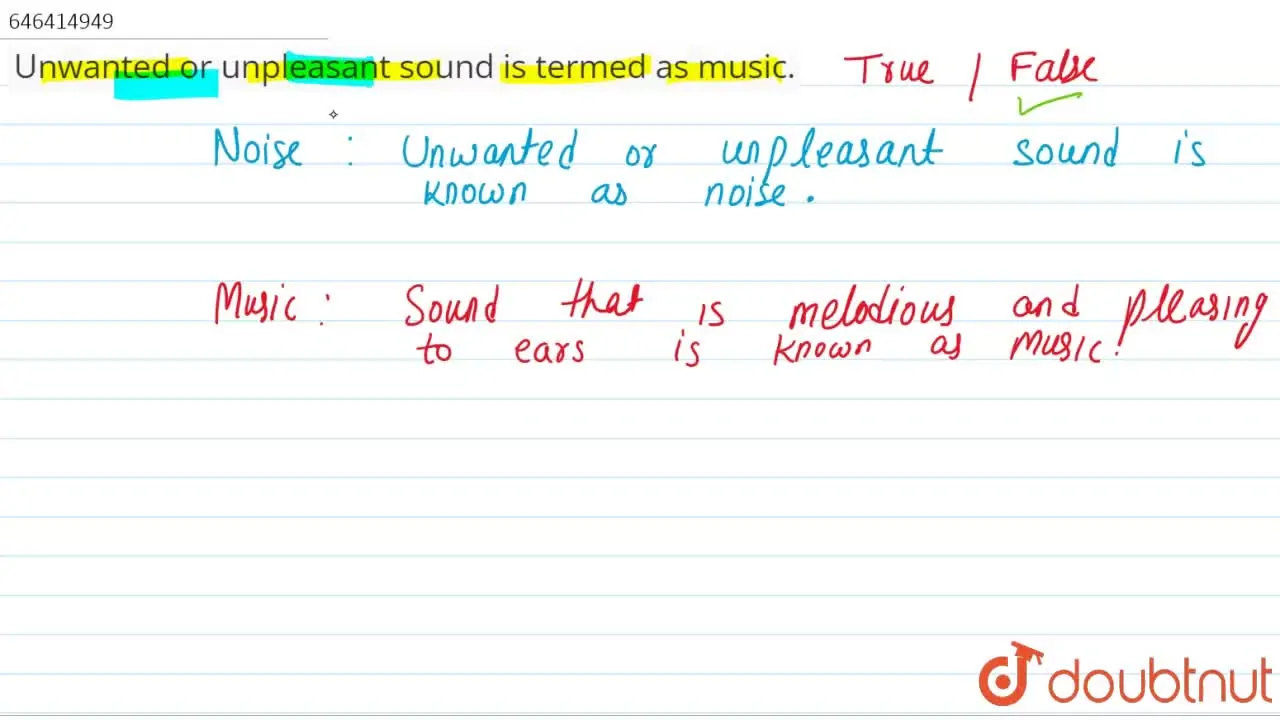 646414949
Unwanted or unpleasant sound is termed as music. True / False
Noise : Unwanted or unpleasant sound is
known as noise.
Music : Sound that is melodious and pleasing
to ears is known as music.
doubtnut